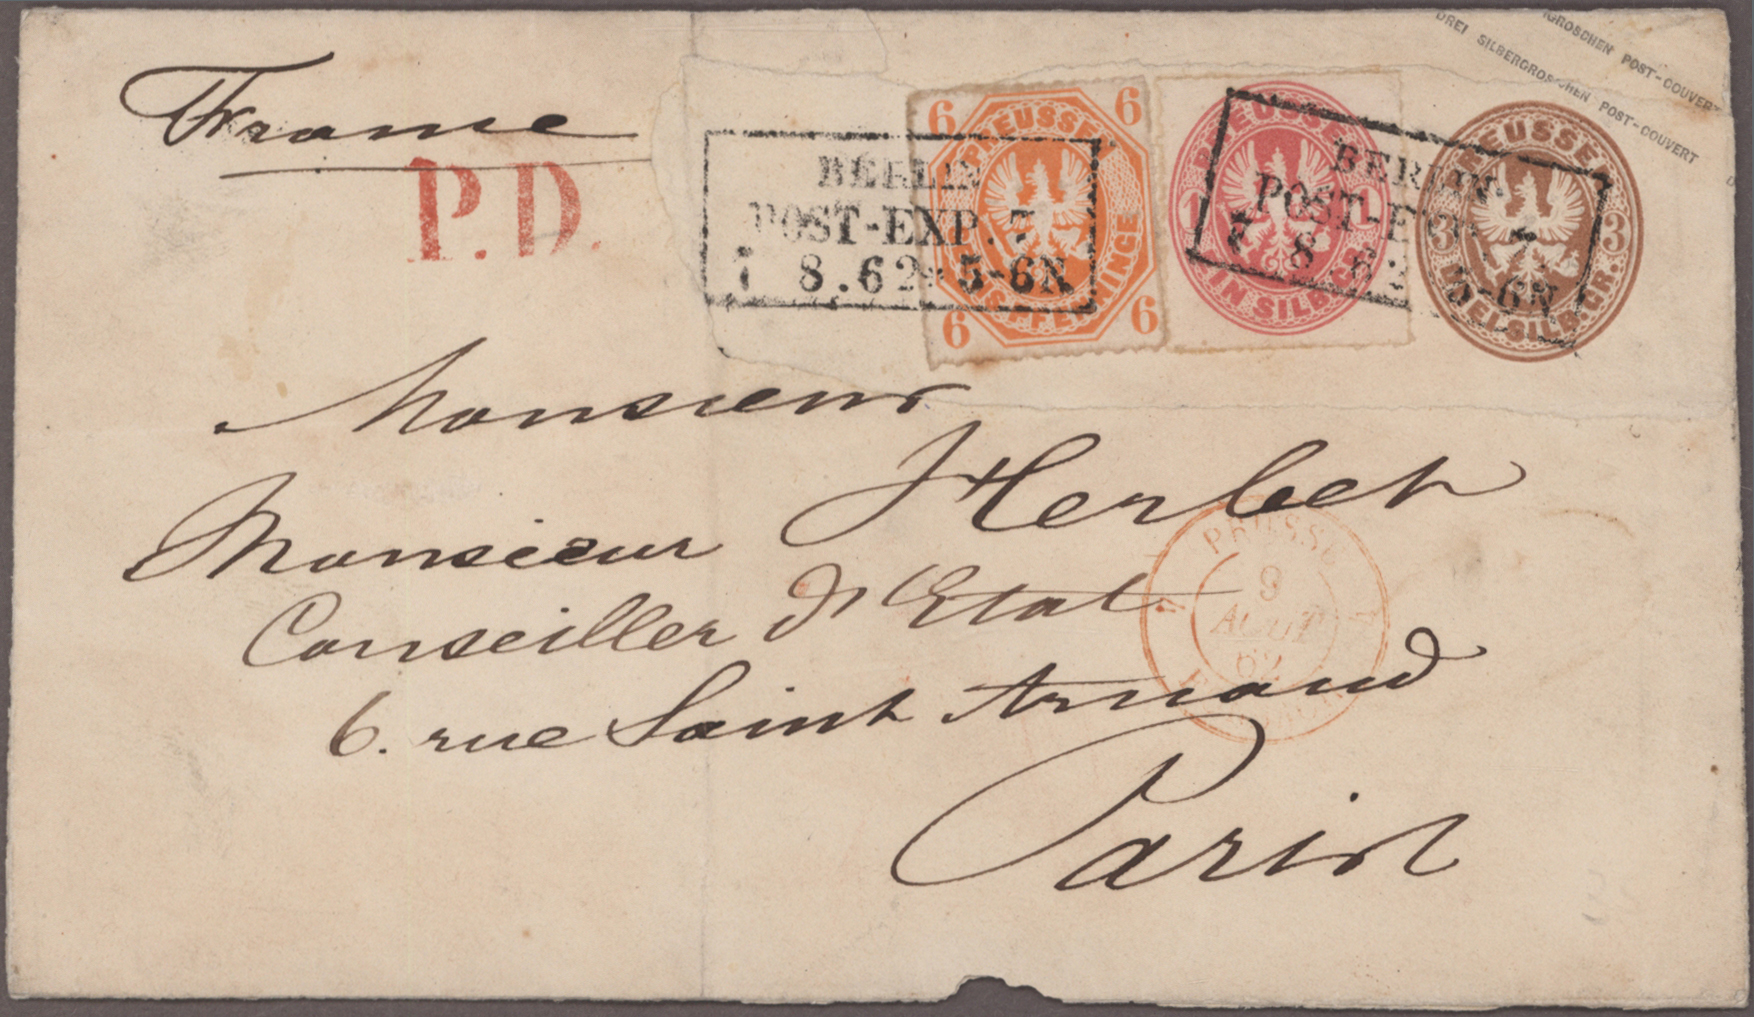 GROSCHEN POST-COUVERT
DREI SILBERGROSCHEN POST-COUVERT
France
P.D.
6 6
PREUSSEN
SECHS PFENNINGE
6 6
BERLIN
POST-EXP. 7
7 8.62* 5-6N
PREUSSEN
1 1
EIN SILB.GR.
PREUSSEN
3 3
DREI SILB.GR.
BERLIN.
POST-EXP. 7
7 8 62 5-6N
Monsieur
Monsieur Herbet
Conseiller d'Etat
6. rue Saint Arnaud
Paris
PRUSSE
9
AOUT
62